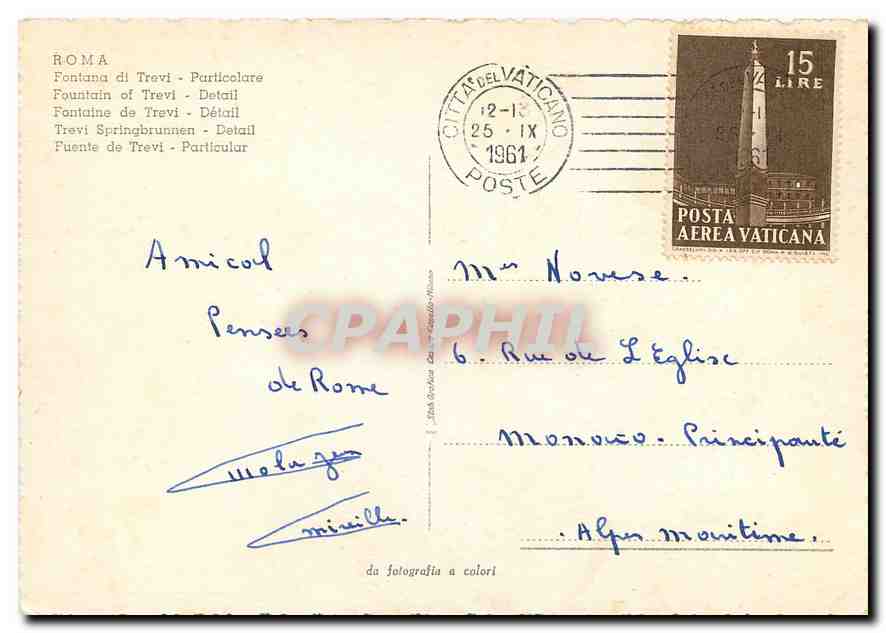 ROMA
Fontana di Trevi - Particolare
Fountain of Trevi - Detail
Fontaine de Trevi - Détail
Trevi Springbrunnen - Detail
Fuente de Trevi - Particular
CITTA' DEL VATICANO
12-13
25 · IX
1961
POSTE
15
LIRE
POSTA
AEREA VATICANA
Amical
Pensées
de Rome
mireille.
Stab. Grafico Cesare Capello-Milano
CPAPHIL
Mes Novese.
6. Rue de L'Eglise
Monaco - Principauté
. Alpes Maritime.
da fotografia a colori